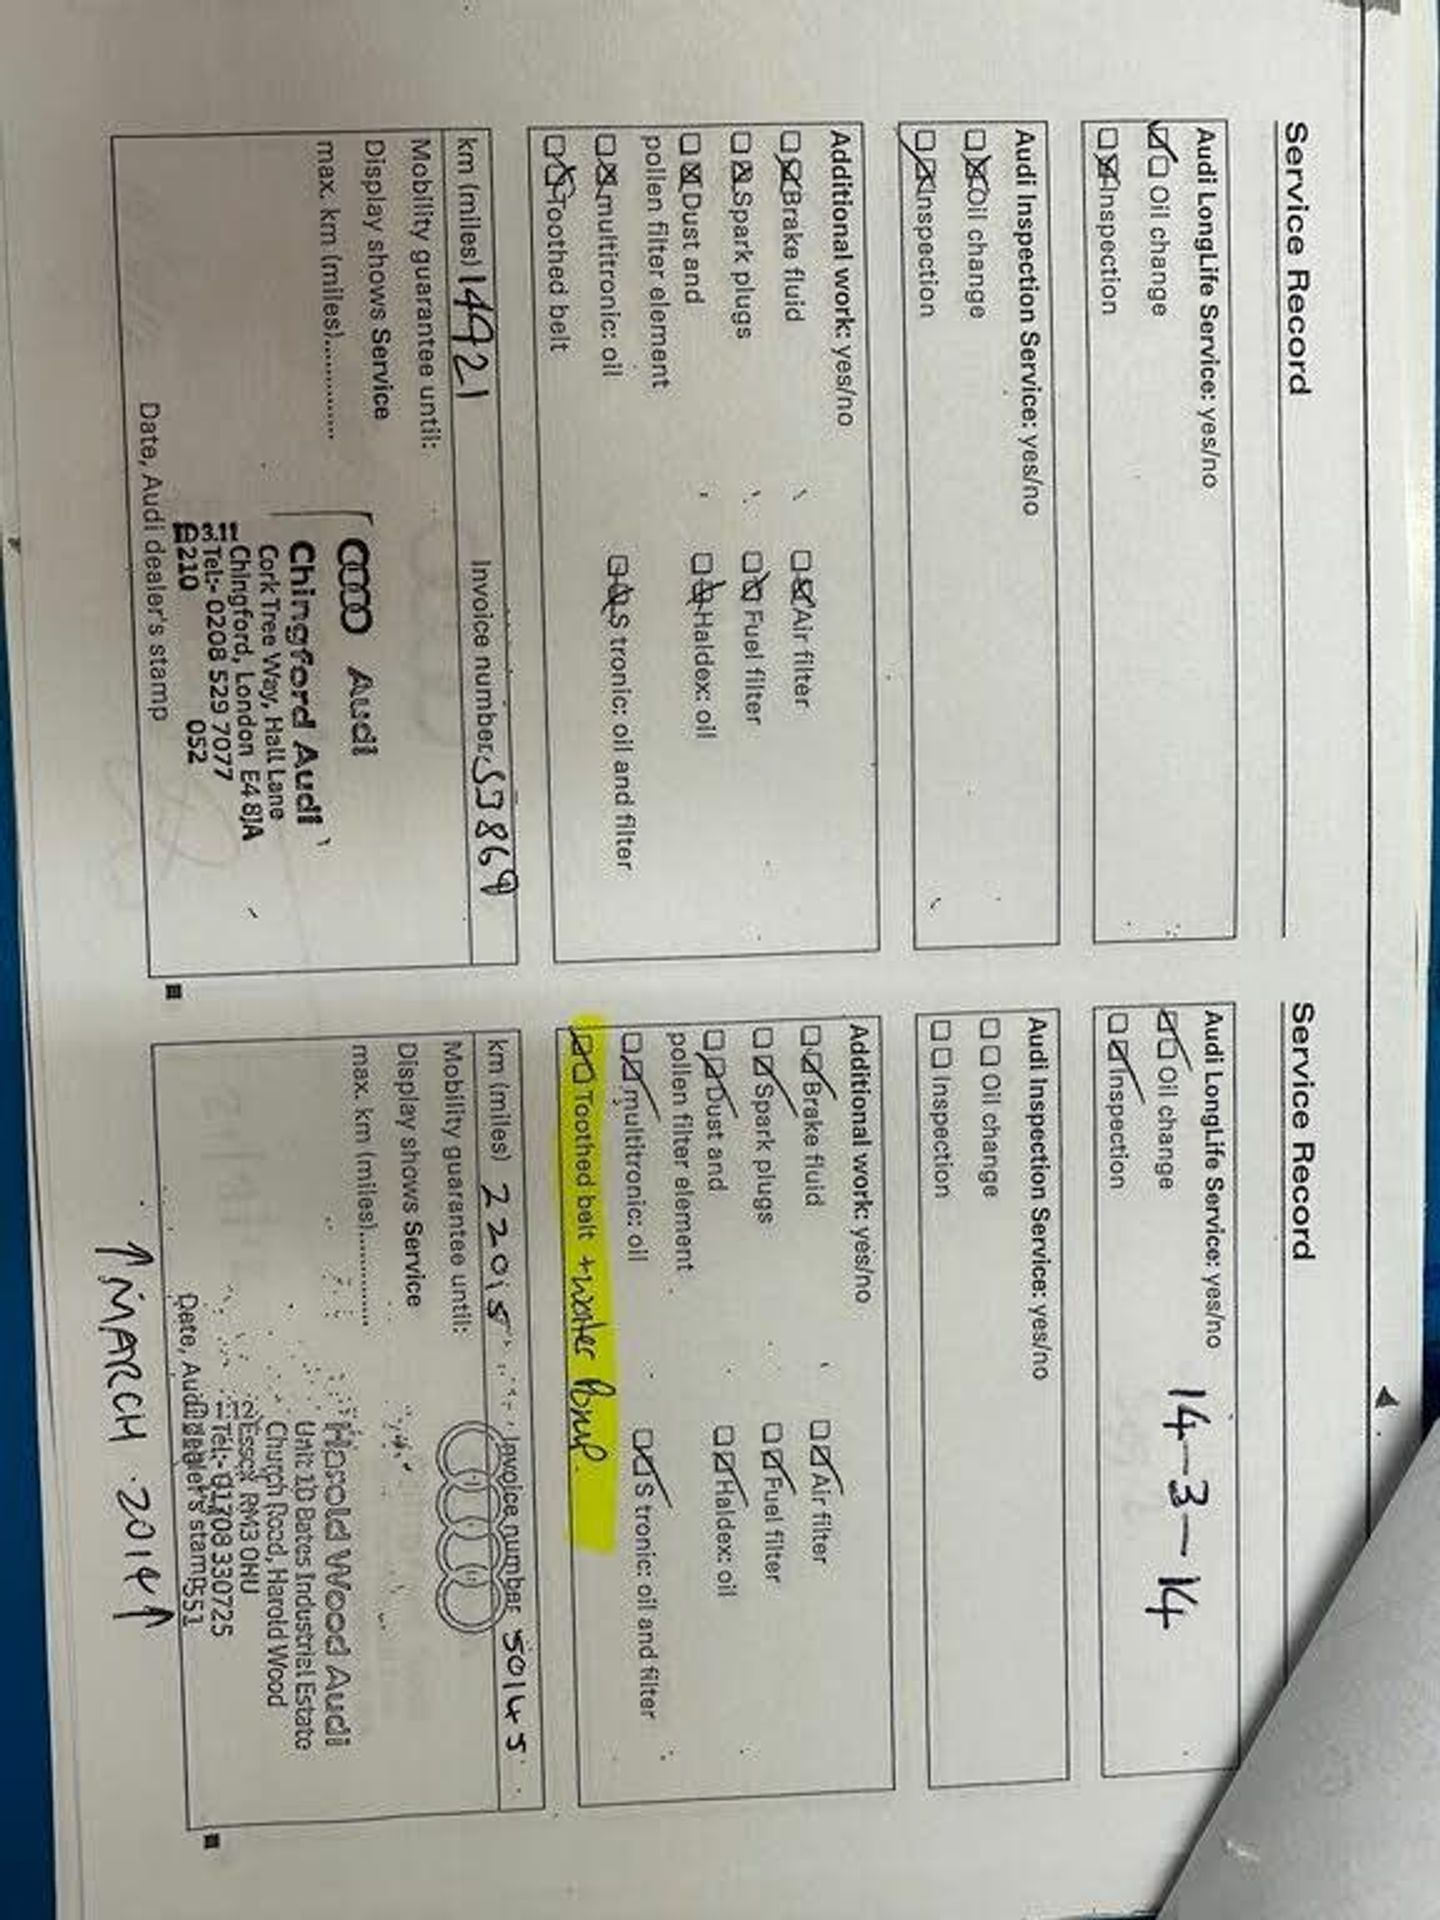 Service Record
Audi LongLife Service: yes/no
Oil change
Inspection
Audi Inspection Service: yes/no
Oil change
Inspection
Additional work: yes/no
Brake fluid
Air filter
Spark plugs
Fuel filter
Dust and
Haldex: oil
pollen filter element
multitronic: oil
S tronic: oil and filter
Toothed belt
km (miles) 14921
Invoice number
Mobility guarantee until:
Display shows Service
max. km (miles)............
Audi
Chingford Audi
Cork Tree Way, Hall Lane
Chingford, London E4 8JA
Tel:- 0208 529 7077
210 052
Date, Audi dealer's stamp
Service Record
Audi LongLife Service: yes/no
14-3-14
Oil change
Inspection
Audi Inspection Service: yes/no
Oil change
Inspection
Additional work: yes/no
Brake fluid
Air filter
Spark plugs
Fuel filter
Dust and
Haldex: oil
pollen filter element
multitronic: oil
S tronic: oil and filter
Toothed belt + water Pump.
km (miles) 22015
Invoice number 50145
Mobility guarantee until:
Display shows Service
max. km (miles)............
Harold Wood Audi
Unit 10 Bates Industrial Estate
Church Road, Harold Wood
Essex RM3 0HU
Tel:- 01708 330725
Date, Audi dealer's stamp 551
↑ MARCH 2014 ↑